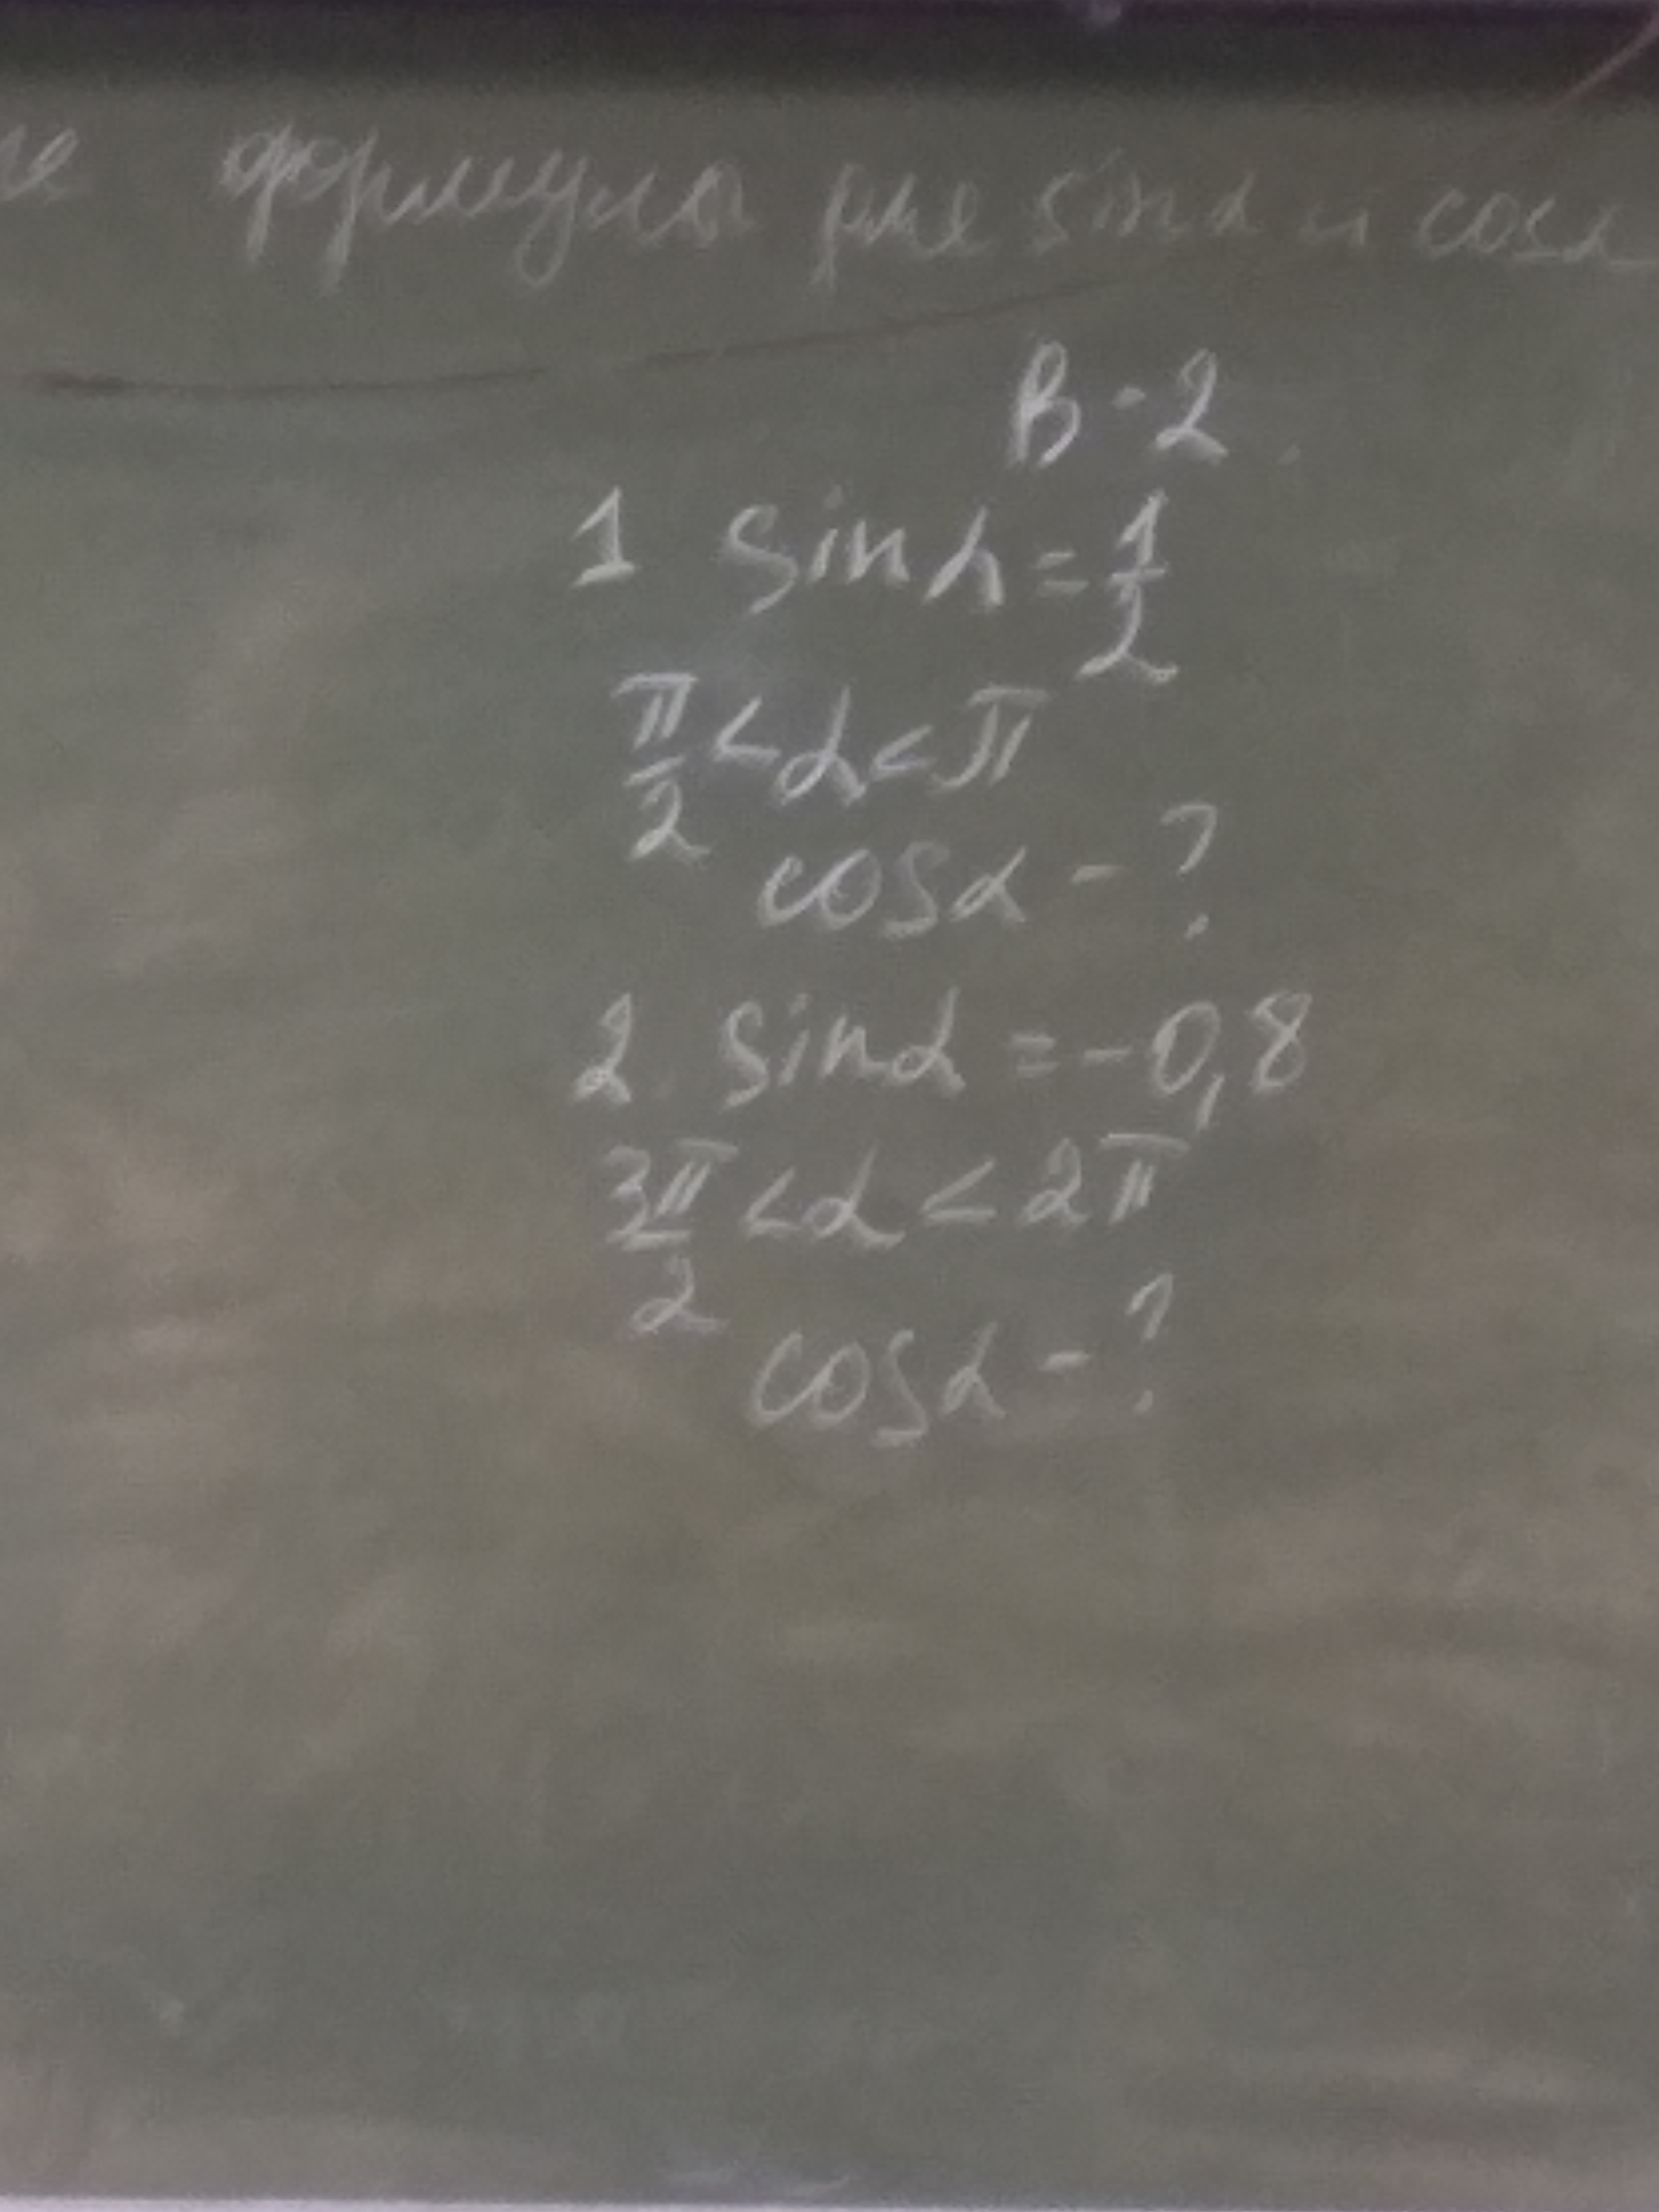 формулы для sin α и cos α
В-2.
1 sin α = 1/2
π/2 < α < π
cos α - ?
2. sin α = -0,8
3π/2 < α < 2π
cos α - ?